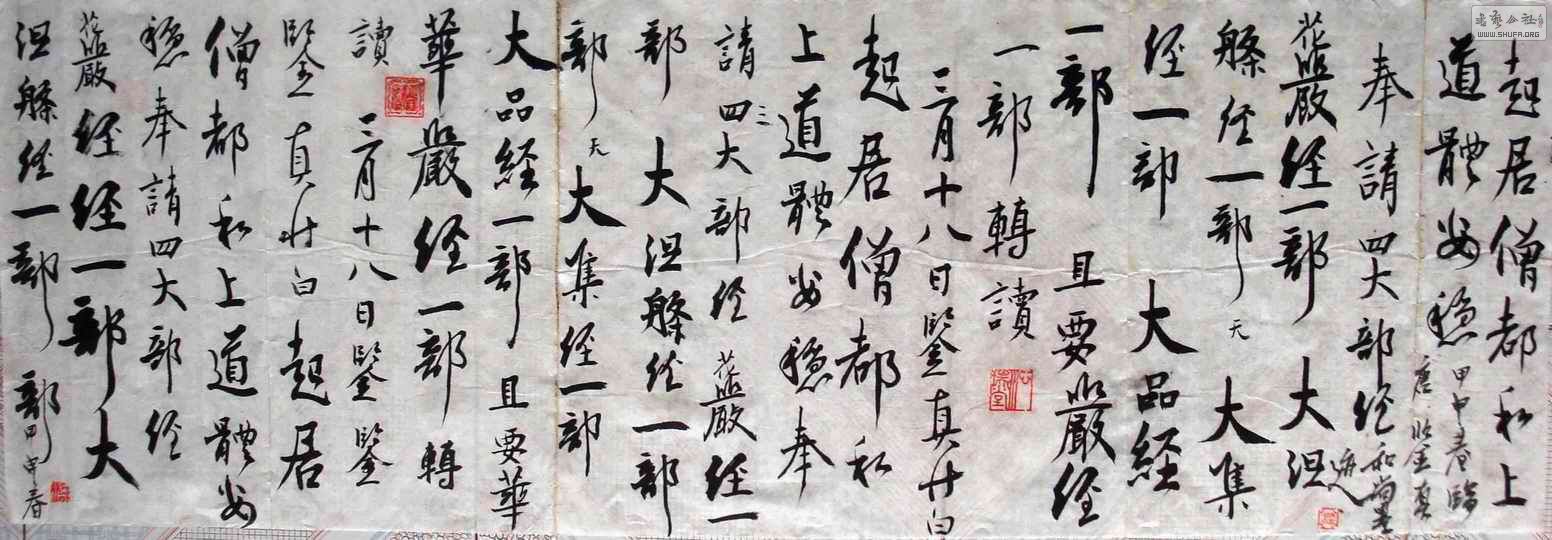 起居僧都和上
道體安穩 甲申春臨
唐鑒真
奉請四大部經 和尚書
花嚴經一部 大涅
槃經一部 无 大集
經一部 大品経
一部 且要嚴經
一部轉讀
三月十八日鑒真廿白
起居僧都和
上道體安穩奉
三
請四大部經 花嚴經一
部 大涅槃經一部
部 无 大集經一部
大品経一部 且要華
華嚴經一部 轉
讀 三月十八日鑒
鑒真狀白 起居
僧都和上道體安
穩奉請四大部經
花嚴經經一部大
涅槃經一部 部甲申春
書藝公社
WWW.SHUFA.ORG